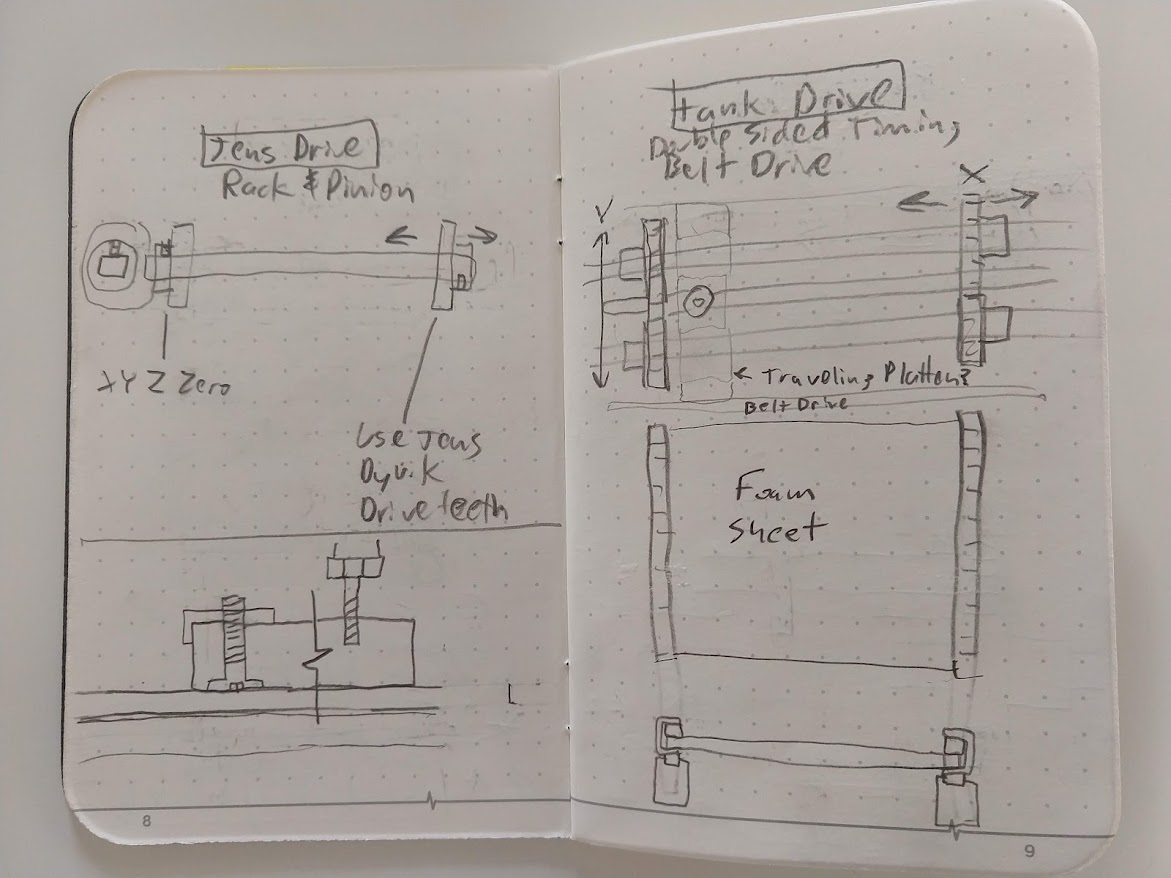 Jens Drive
Rack & Pinion
XYZ Zero
Use Jens
Dyvik
Drive teeth
L
8
tank Drive
Double Sided Timing
Belt Drive
X
Y
← Traveling Platten?
Belt Drive
Foam
Sheet
9